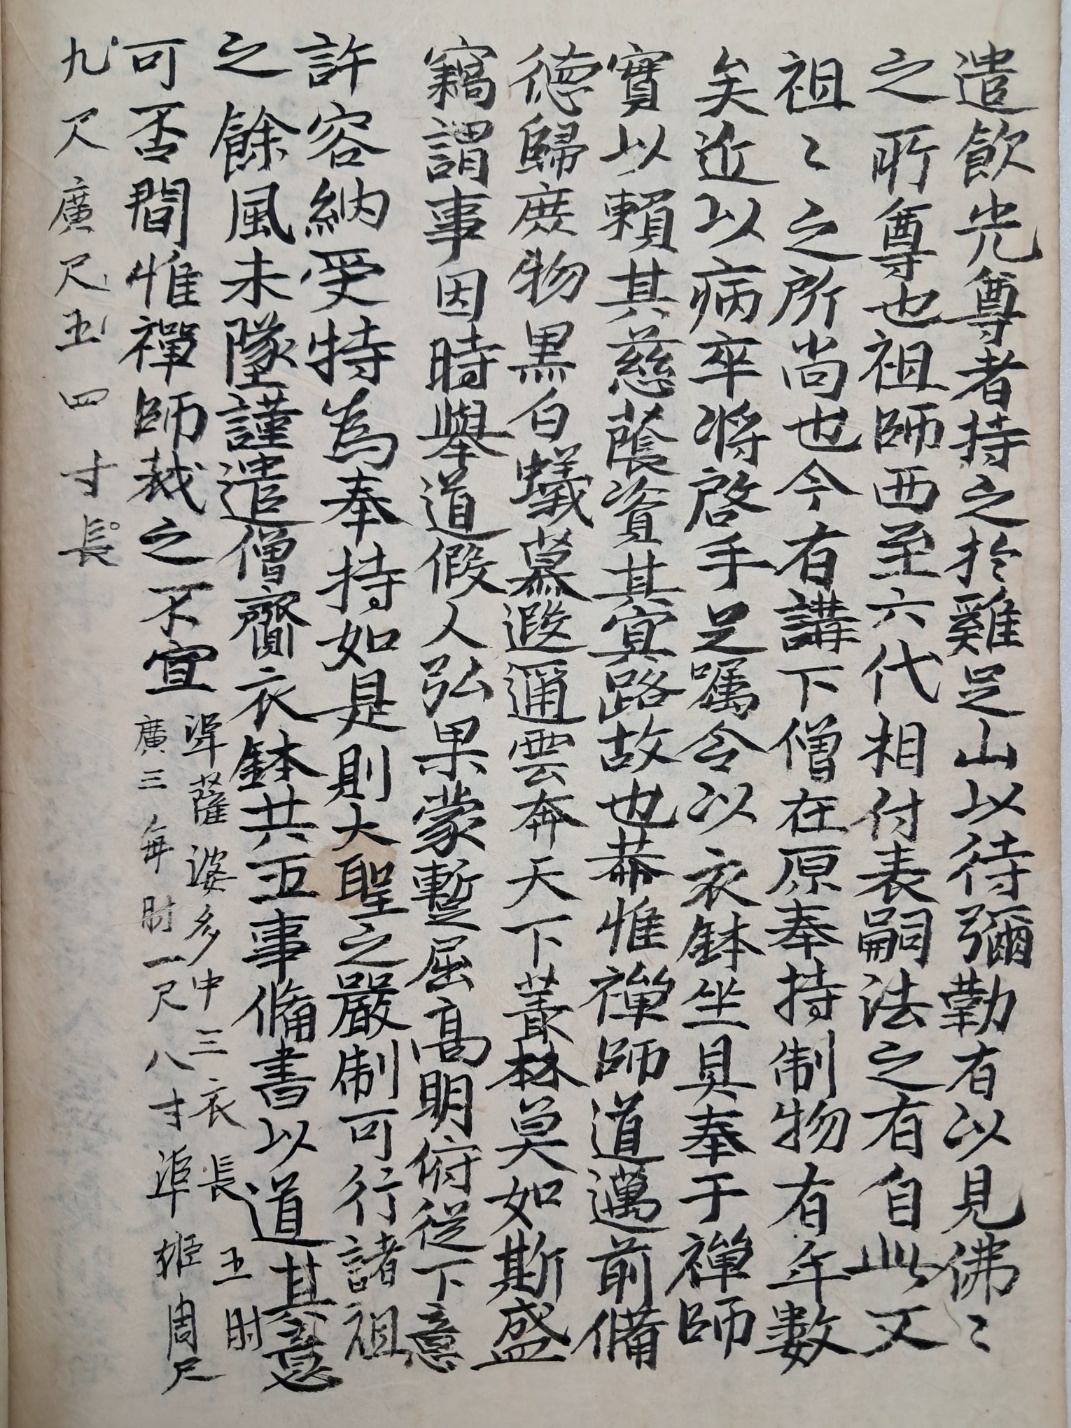 遣飲光尊者持之於雞足山以待彌勒有以見佛〻
之所尊也祖師西至六代相付表嗣法之有自此又
祖〻之所尚也今有講下僧在原奉持制物有年數
矣近以病卒將啓手足囑令以衣鉢坐具奉于禪師
實以賴其慈蔭資其冥路故也恭惟禪師道邁前備
德歸庶物黑白蟻慕遐邇雲奔天下叢林莫如斯盛
竊謂事因時舉道假人弘果蒙暫屈高明俯從下意
許容納受特為奉持如是則大聖之嚴制可行諸祖
之餘風未墜謹遣僧齎衣鉢共五事備書以道其意
可否間惟禪師裁之不宣 准薩婆多中三衣長五肘
廣三每肘一尺八寸准姬周尺
九尺廣尺五四寸長